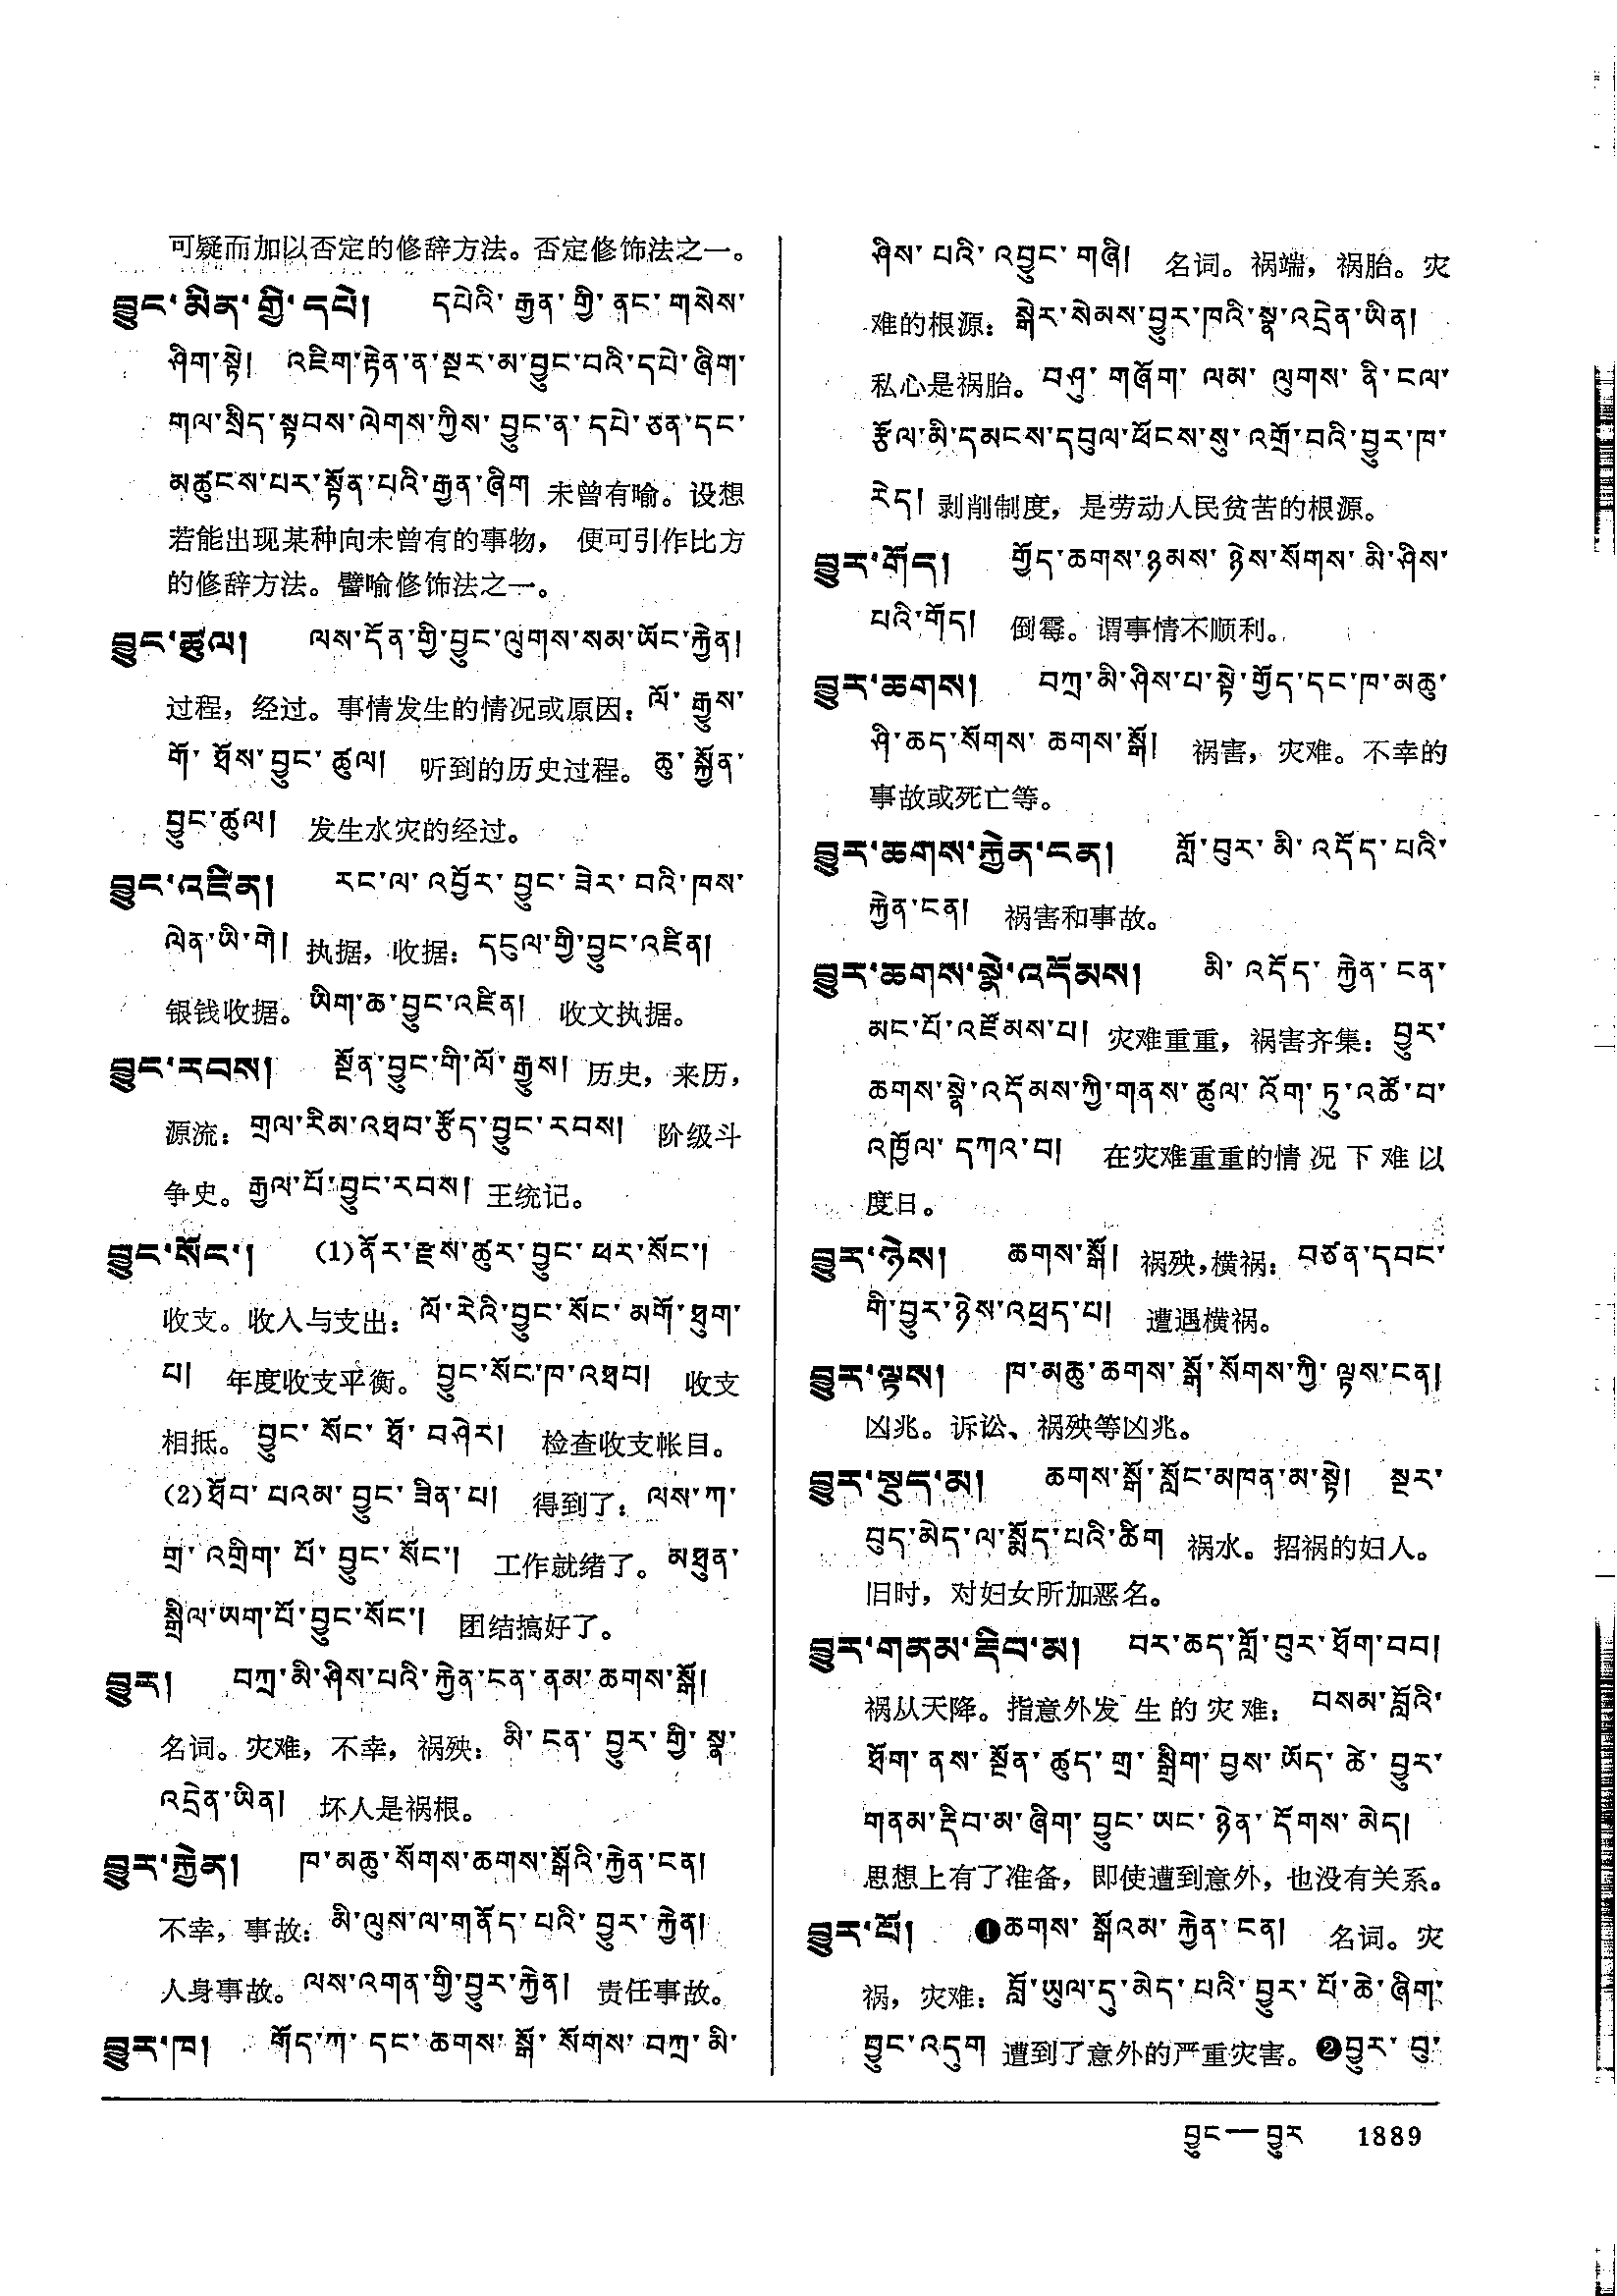 可疑而加以否定的修辞方法。否定修饰法之一。
བྱུང་མིན་གྱི་དཔེ། དཔེའི་རྒྱན་གྱི་ནང་གསེས་
ཤིག་སྟེ། འཇིག་རྟེན་ན་སྔར་མ་བྱུང་བའི་དཔེ་ཞིག་
གལ་སྲིད་སྟབས་ལེགས་ཀྱིས་བྱུང་ན་དཔེ་ཅན་དང་
མཚུངས་པར་སྟོན་པའི་རྒྱན་ཞིག 未曾有喻。设想
若能出现某种向未曾有的事物， 便可引作比方
的修辞方法。譬喻修饰法之一。
བྱུང་ཚུལ། ལས་དོན་གྱི་བྱུང་ལུགས་སམ་ཡོང་རྐྱེན།
过程，经过。事情发生的情况或原因：ལོ་རྒྱུས་
གོ་ཐོས་བྱུང་ཚུལ། 听到的历史过程。ཆུ་སྐྱོན་
བྱུང་ཚུལ། 发生水灾的经过。
བྱུང་འཛིན། རང་ལ་འབྱོར་བྱུང་ཟེར་བའི་ཁས་
ལེན་ཡི་གེ། 执据，收据：དངུལ་གྱི་བྱུང་འཛིན།
银钱收据。ཡིག་ཆ་བྱུང་འཛིན། 收文执据。
བྱུང་རབས། སྔོན་བྱུང་གི་ལོ་རྒྱུས། 历史，来历，
源流：གྲལ་རིམ་འཐབ་རྩོད་བྱུང་རབས། 阶级斗
争史。རྒྱལ་པོ་བྱུང་རབས། 王统记。
བྱུང་སོང་། (1)ནོར་རྫས་ཚུར་བྱུང་ཕར་སོང་།
收支。收入与支出：ལོ་རེའི་བྱུང་སོང་མགོ་ཐུག་
པ། 年度收支平衡。བྱུང་སོང་ཁ་འཐབ། 收支
相抵。བྱུང་སོང་ཐོ་བཤེར། 检查收支帐目。
(2)ཐོབ་པའམ་བྱུང་ཟིན་པ། 得到了：ལས་ཀ་
གྲ་འགྲིག་པོ་བྱུང་སོང་། 工作就绪了。མཐུན་
སྒྲིལ་ཡག་པོ་བྱུང་སོང་། 团结搞好了。
བྱུར། བཀྲ་མི་ཤིས་པའི་རྐྱེན་ངན་ནམ་ཆགས་སྒོ།
名词。灾难，不幸，祸殃：མི་ངན་བྱུར་གྱི་སྣ་
འདྲེན་ཡིན། 坏人是祸根。
བྱུར་རྐྱེན། ཁ་མཆུ་སོགས་ཆགས་སྒོའི་རྐྱེན་ངན།
不幸，事故：མི་ལུས་ལ་གནོད་པའི་བྱུར་རྐྱེན།
人身事故。ལས་འགན་གྱི་བྱུར་རྐྱེན། 责任事故。
བྱུར་ཁ། གོད་ཀ་དང་ཆགས་སྒོ་སོགས་བཀྲ་མི་
ཤིས་པའི་འབྱུང་གཞི། 名词。祸端，祸胎。灾
难的根源：སྒེར་སེམས་བྱུར་ཁའི་སྣ་འདྲེན་ཡིན།
私心是祸胎。བཤུ་གཞོག་ལམ་ལུགས་ནི་ངལ་
རྩོལ་མི་དམངས་དབུལ་ཕོངས་སུ་འགྲོ་བའི་བྱུར་ཁ་
རེད། 剥削制度，是劳动人民贫苦的根源。
བྱུར་གོད། གྱོད་ཆགས་ཉམས་ཉེས་སོགས་མི་ཤིས་
པའི་གོད། 倒霉。谓事情不顺利。
བྱུར་ཆགས། བཀྲ་མི་ཤིས་པ་སྟེ་གྱོད་དང་ཁ་མཆུ་
ཤི་ཆད་སོགས་ཆགས་སྒོ། 祸害，灾难。不幸的
事故或死亡等。
བྱུར་ཆགས་རྐྱེན་ངན། གློ་བུར་མི་འདོད་པའི་
རྐྱེན་ངན། 祸害和事故。
བྱུར་ཆགས་སྣེ་འདོམས། མི་འདོད་རྐྱེན་ངན་
མང་པོ་འཛོམས་པ། 灾难重重，祸害齐集：བྱུར་
ཆགས་སྣེ་འདོམས་ཀྱི་གནས་ཚུལ་འོག་ཏུ་འཚོ་བ་
འཁྱོལ་དཀའ་བ། 在灾难重重的情况下难以
度日。
བྱུར་ཉེས། ཆགས་སྒོ། 祸殃，横祸：བཙན་དབང་
གི་བྱུར་ཉེས་འཕྲད་པ། 遭遇横祸。
བྱུར་ལྟས། ཁ་མཆུ་ཆགས་སྒོ་སོགས་ཀྱི་ལྟས་ངན།
凶兆。诉讼、祸殃等凶兆。
བྱུར་སྡུད་མ། ཆགས་སྒོ་སློང་མཁན་མ་སྟེ། སྔར་
བུད་མེད་ལ་སྨོད་པའི་ཚིག 祸水。招祸的妇人。
旧时，对妇女所加恶名。
བྱུར་གནམ་རྡིབ་མ། བར་ཆད་གློ་བུར་ཐོག་བབ།
祸从天降。指意外发生的灾难：བསམ་བློའི་
ཐོག་ནས་སྔོན་ཚུད་གྲ་སྒྲིག་བྱས་ཡོད་ཚེ་བྱུར་
གནམ་རྡིབ་མ་ཞིག་བྱུང་ཡང་ཉེན་དོགས་མེད།
思想上有了准备，即使遭到意外，也没有关系。
བྱུར་པོ། ❶ཆགས་སྒོའམ་རྐྱེན་ངན། 名词。灾
祸，灾难：བློ་ཡུལ་དུ་མེད་པའི་བྱུར་པོ་ཆེ་ཞིག་
བྱུང་འདུག 遭到了意外的严重灾害。❷བྱུར་བུ་
བྱུང—བྱུར 1889